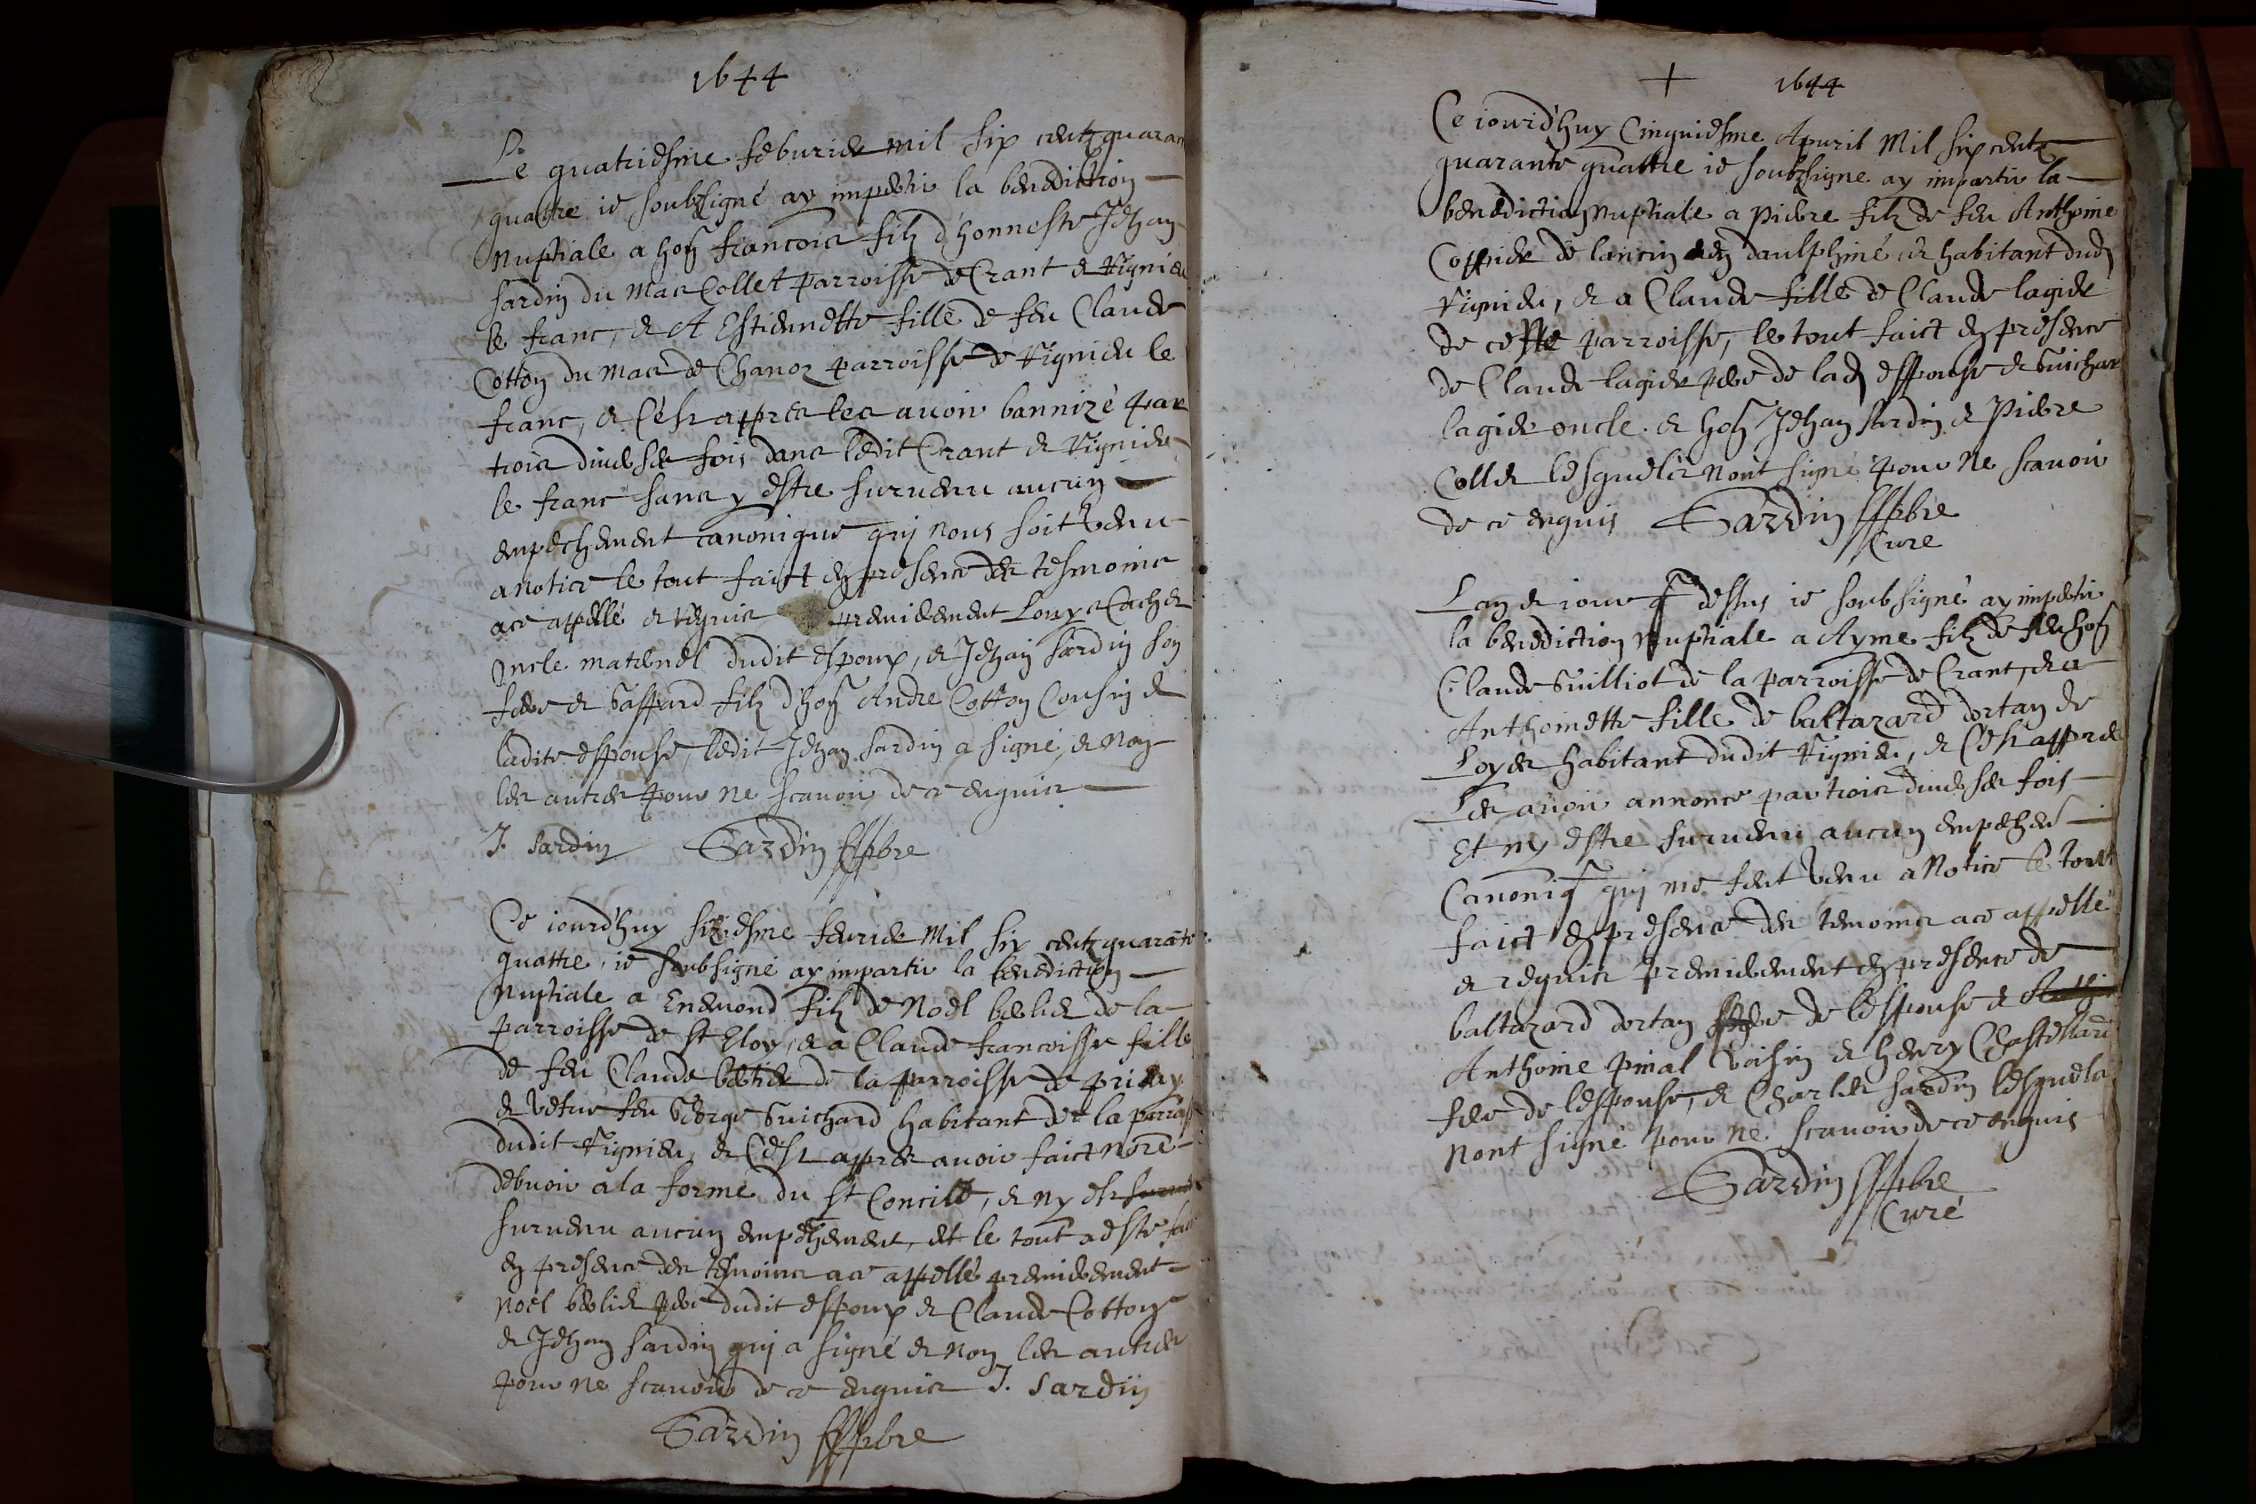 1644
Le quatriesme feburier mil six centz quarant
quatre ie soubzsigné ay imperti la benediction
Nuptiale a hon francois filz d'honneste Jehan
sardin du mas Collet parroisse de Crant et Vignieu
le franc, et A Estiennette fille de feu Claude
Cotton du mas de Chanoz parroisse de Vignieu le
franc, et C'est appres les avoir bannizé par
trois diverses fois dans ledit Crant et Vignieu
le franc sans y estre survenu aucun
empechement canonique qui nous soit venu
a notice le tout faict en presence des tesmoins
a ce appellé et requis premierement Louys Cacher
Oncle maternel dudit espoux, et Jehan sardin son
frere et Gaspard filz d'hon Andre Cotton Cousin de
ladite espouse, ledit Jehan sardin a signé, et non
les autres pour ne scavoir de ce enquis
J. sardin Sardin pbre
Ce iourd'huy siziesme fevrier Mil six centz quarāte
quattre, ie soubsigné ay impartir la benediction
Nuptiale a Enemond filz de Noel berlier de la
parroisse de St Eloy, et a Claude francoisse fille
de feu Claude de la parroisse de priay
et vefve feu George Guichard habitant de la parroisse
dudit Vignieu, et C'est appres avoir faict nore
debvoir a la forme du St Concile, et ny est
survenu aucun empechement, et le tout a esté faict
en presence des tesmoins a ce appellé premierement
Noel berlier pere dudit espoux et Claude Cotton
et Jehan sardin qui a signé et non les autres
pour ne scavoir de ce enquis J. sardin
Sardin pbre
+ 1644
Ce iourd'huy Cinquiesme Apvril Mil six centz
quarante quattre ie soubzsigne ay impartir la
benediction Nuptiale a Pierre filz de feu Anthoine
Coppier de lancin en daulphiné et habitant dud
Vignieu, et a Claude fille de Claude lagier
de ceste parroisse, le tout faict en presence
de Claude lagier pere de lad espouse et Guichar
lagier oncle. et hon Jehan sardin et Pierre
Collet lesquelz nont signé pour ne scavoir
de ce enquis Sardin pbre
Cure
Lan et iour q dessus ie soubsigné ay imperti
la benediction Nuptiale a Ayme filz de feu hon
Claude Guilliot de la parroisse de Crant, et a
Anthoinette fille de baltazard dortan de
Loyes habitant dudit Vignieu, et C'est appres
Les avoir annonce par trois diverses fois
Et ny estre survenu aucun empechen
Canoniq qui me feut venu a Notice Le tout
faict en presence des temoins a ce appellé
et requis premierement en presence de
baltazard dortan pere de l'espouse et
Anthoine pinal voisin et henry Chastellard
frere de lespouse, et Charles sardin lesquels
nont signé pour ne scavoir de ce enquis
Sardin pbre
Curé